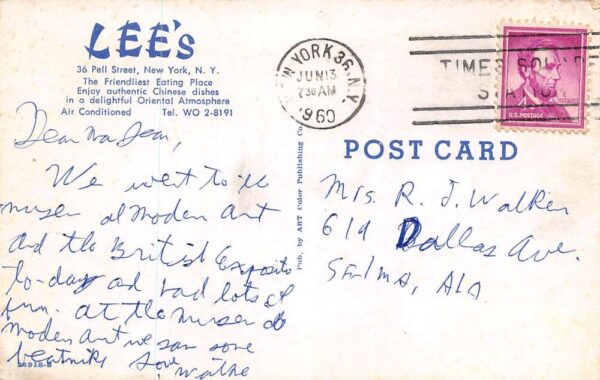 LEE's
36 Pell Street, New York, N. Y.
The Friendliest Eating Place
Enjoy authentic Chinese dishes
in a delightful Oriental Atmosphere
Air Conditioned Tel. WO 2-8191
NEW YORK 36, N.Y.
JUN 13
730 AM
1960
TIMES SQUARE
STATION
U.S. POSTAGE
Dear Ma Jean,
We went to
museum of Modern Art
and the British Exposito
to-day and had lots of
fun. at the museum
Modern Art we saw some
beatniks Love,
24018-B
Pub. by ART Color Publishing Co.
POST CARD
Mrs. R. J. Walker
619 Dallas Ave.
Selma, Ala